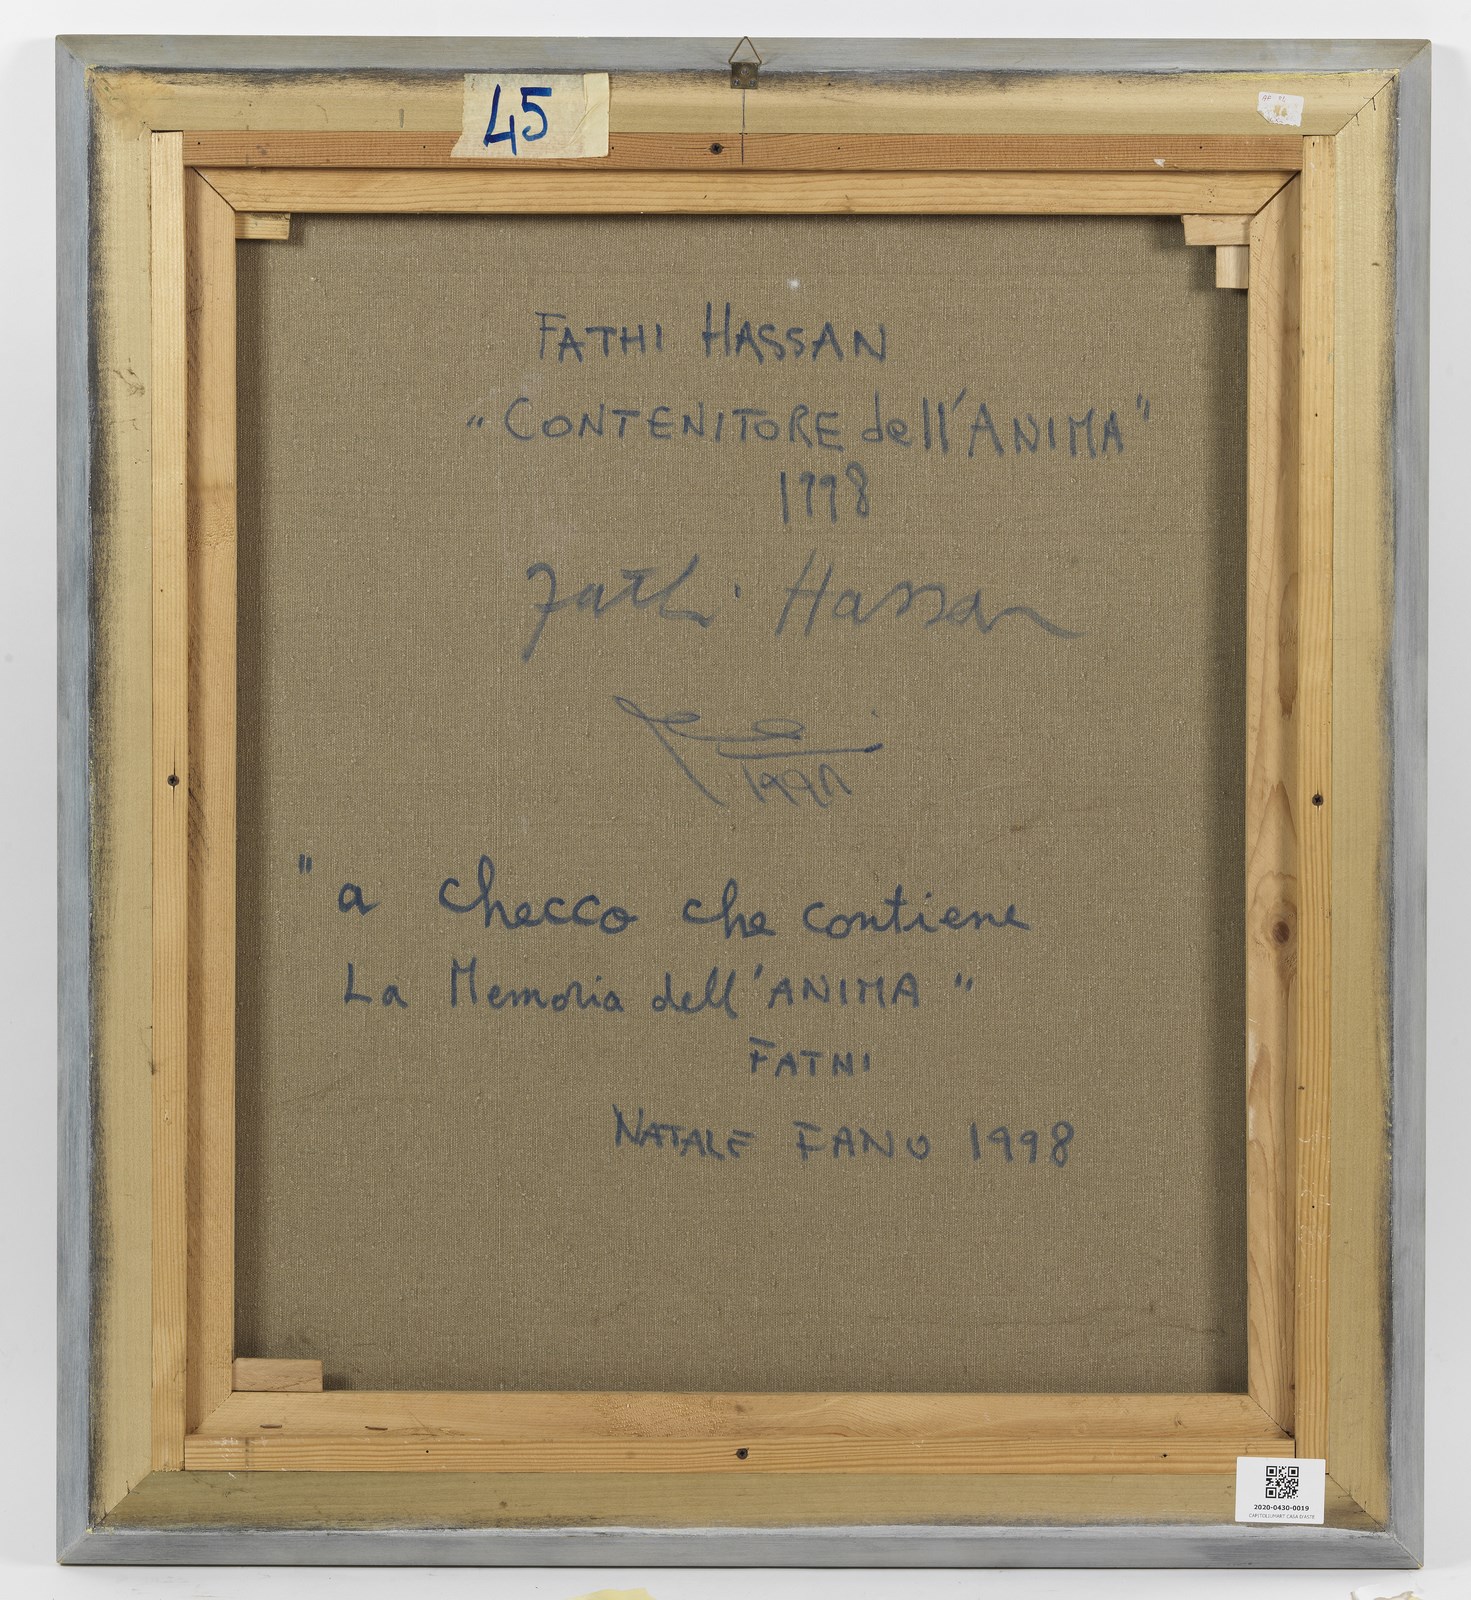 45
FATHI HASSAN
"CONTENITORE dell'ANIMA"
1998
Fathi Hassan
"a checco che contiene
La Memoria dell'ANIMA"
FATHI
NATALE FANO 1998
2020-0430-0019
CAPITOLIUMART CASA D'ASTE